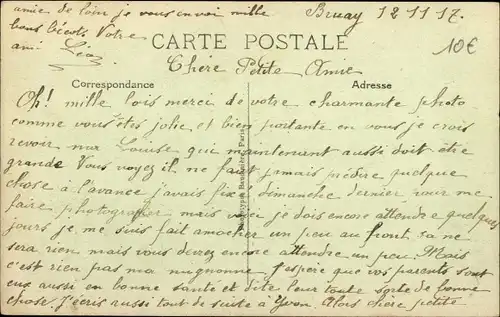 amie de loin je vous envoi mille
bons bécots Votre
ami Léo
Bruay 12 11 17.
10€
CARTE POSTALE
Chère Petite Amie
Correspondance
Adresse
Oh! mille fois merci de votre charmante photo
comme vous êtes jolie et bien portante en vous je crois
revoir ma Louise qui maintenant aussi doit être
grande Vous voyez il ne faut jamais prédire quelque
chose à l'avance j'avais fixé dimanche dernier pour me
faire photografier mais voici je dois encore attendre quelques
jours je me suis fait amocher un peu au front. sa ne
sera rien mais vous devrez encore attendre un peu. Mais
c'est rien pas ma mignonne. J'espère que vos parents sont
eux aussi en bonne santé et dite leur toute sorte de bonne
chose. J'écris aussi tout de suite à Yvon. Alors chère petite